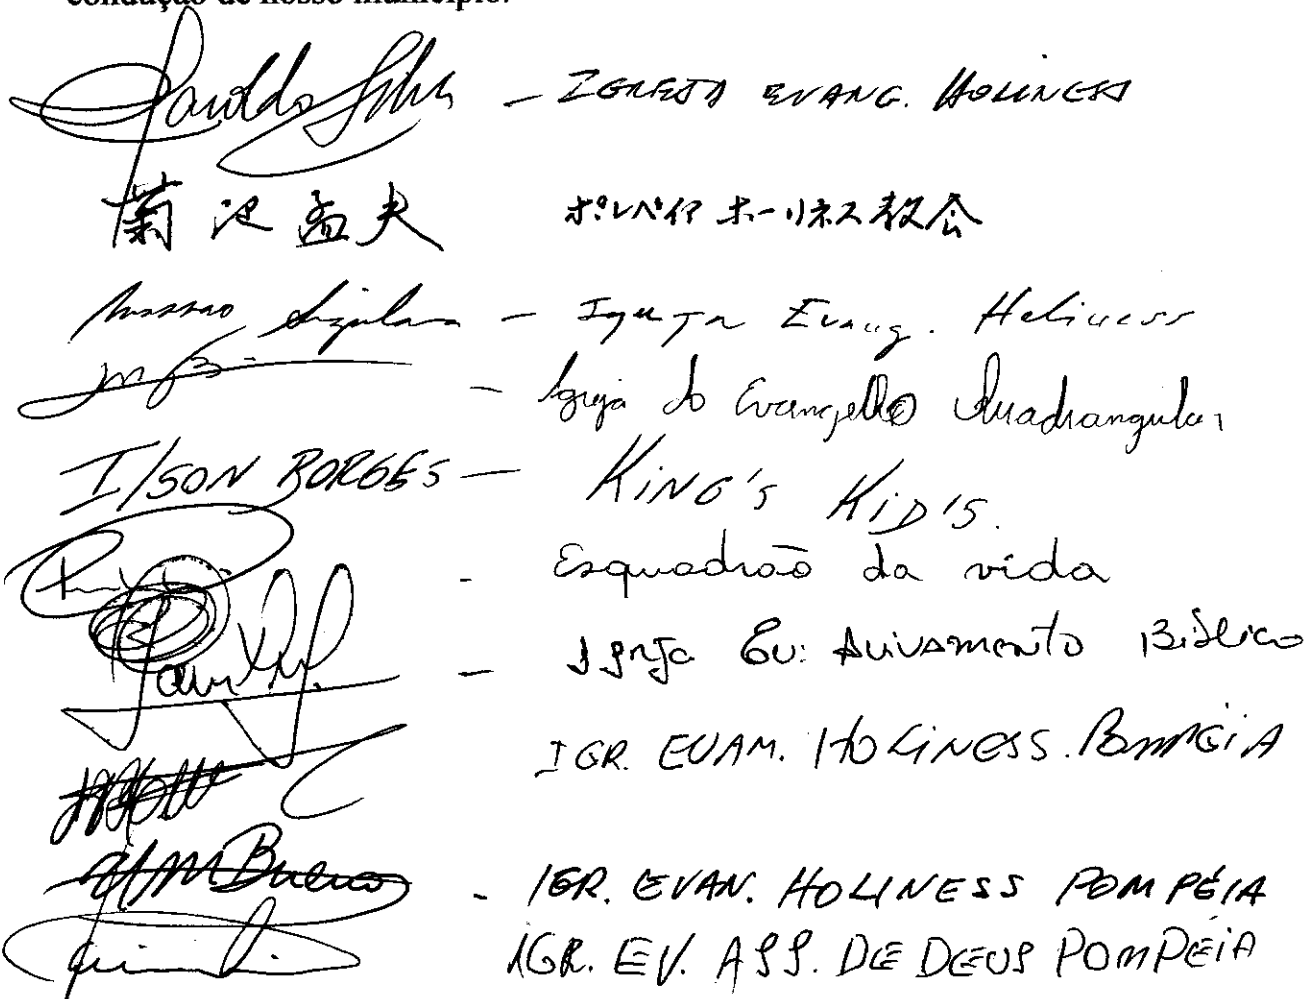 condução de nosso município.
- IGREJA EVANG. HOLINESS
菊池孟夫 ポンペイア ホーリネス教会
- Igreja Evang. Holiness
- Igreja do Evangelho Quadrangular
ILSON BORGES - KING'S KID'S.
- Esquadrão da vida
- Igreja Ev: Avivamento Bíblico
IGR. EVAM. HOLINESS. POMPÉIA
Bueno - IGR. EVAN. HOLINESS POMPÉIA
IGR. EV. ASS. DE DEUS POMPEIA